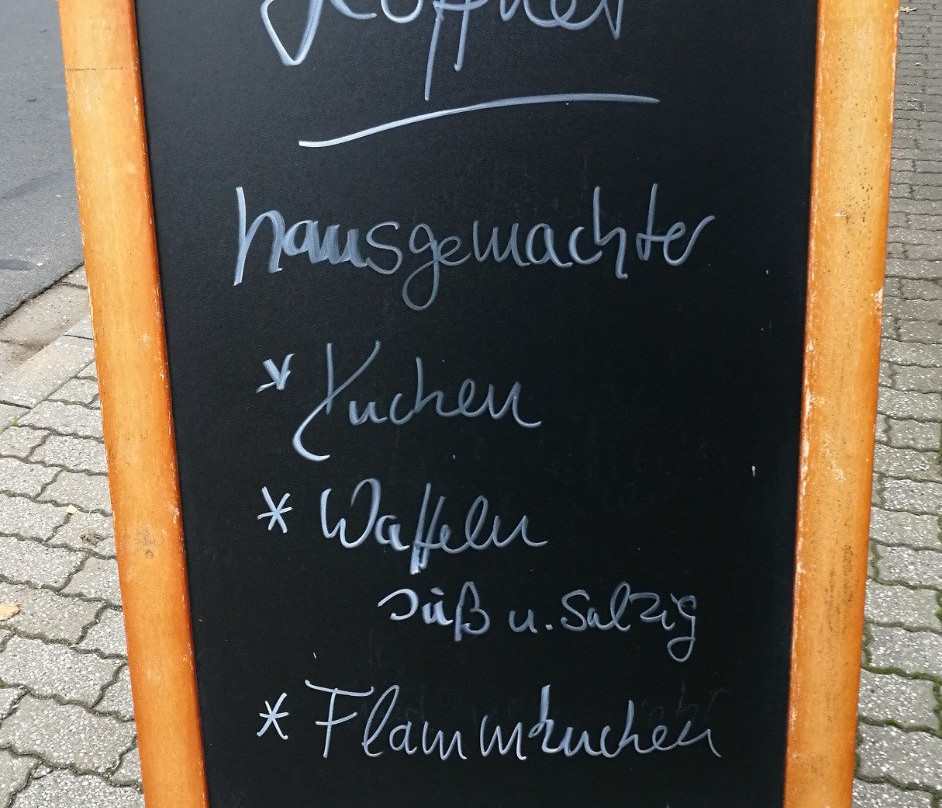 hausgemachter
* Kuchen
* Waffeln
süß u. Salzig
* Flammkuchen